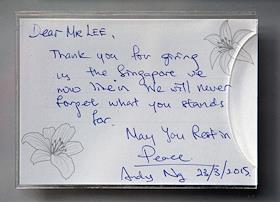 Dear Mr LEE,
Thank you for giving
us the Singapore we
now live in. We will never
forget what you stands
for.
May You Rest in
Peace
Andy Ng 23/3/2015